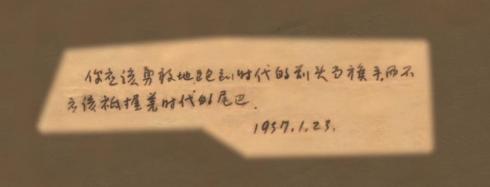 你应该勇敢地跑到时代的前头为旗手而不
应该祗握着时代的尾巴.
1957.1.23.